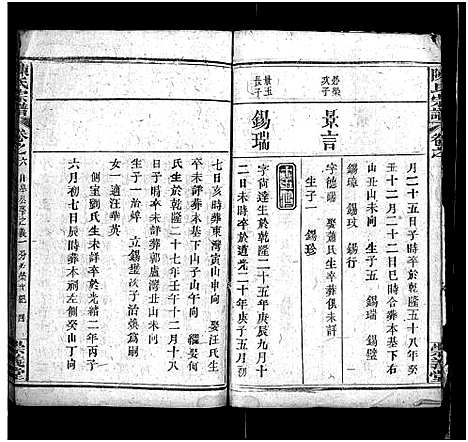 陳氏宗譜 卷之
月二十五日子時卒於乾隆五十八年癸
丑十二月二十二日巳時合葬本基下右
山丑山未向 生子五 錫瑞 錫璧
錫璋 錫玟 錫行
景言
字德馨 娶蕭氏生卒葬俱未詳
生子一 錫珍
十七世
景玉長子
錫瑞
字尚達生於乾隆二十五年庚辰九月十
二日未時卒於道光二十年庚子五月初
六日辰時葬東灣寅山申向 娶汪氏生
卒未詳葬本基下山子山午向 繼娶何
氏生於乾隆二十七年壬午十二月十八
日子時卒未詳葬郭盧灣丑山未向
子一治焯 立錫璧次子治煥爲嗣
女一適汪華英
側室劉氏生未詳卒於光緒二年丙子
六月初七日辰時葬本祠左側癸山丁向
陳氏宗譜 卷之六
聚義堂